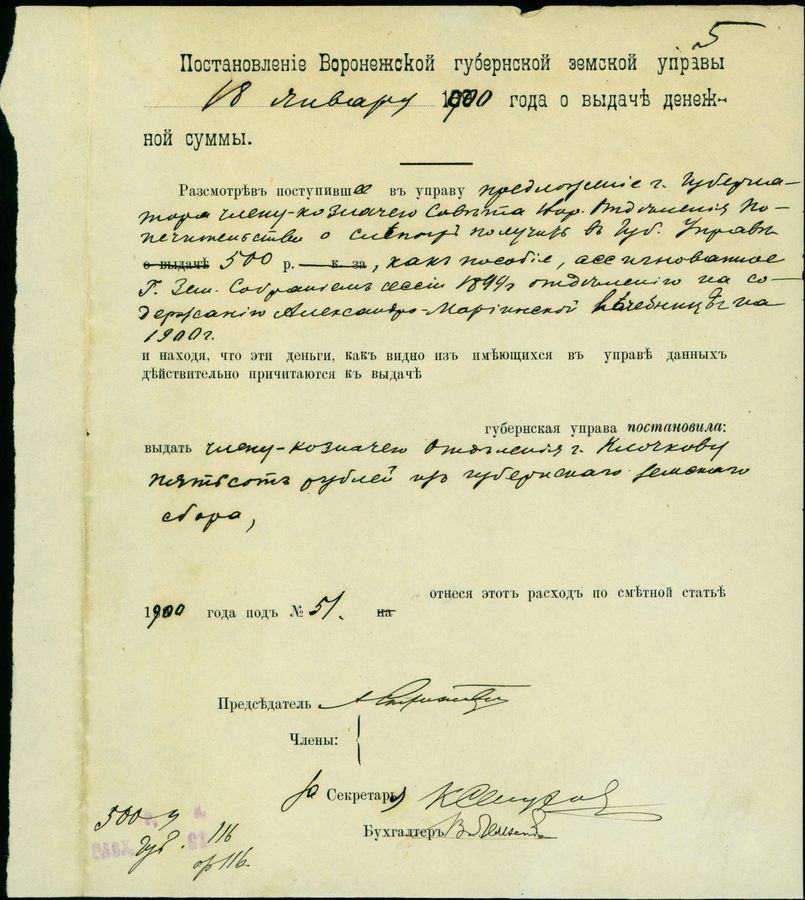 5
Постановленіе Воронежской губернской земской управы
18 январу 1900 года о выдачѣ денеж-
ной суммы.
Разсмотрѣвъ поступившее въ управу предложеніе г. Губерна-
тора члену-козначею Совѣта Вор. Отдѣленія По-
печительства о слѣпыхъ получить въ Губ. Управѣ
о выдачѣ 500 р. к. за, какъ пособіе, ассигнованное
Г. Зем. Собраніемъ сессіи 1899 г отдѣленію на со-
держанію Александро-Маріинской лѣчебницы на
1900 г.
и находя, что эти деньги, какъ видно изъ имѣющихся въ управѣ данныхъ
дѣйствительно причитаются къ выдачѣ
губернская управа постановила:
выдать члену-козначею Отдѣленія г. Клочкову
пятьсотъ рублей изъ губернскаго земскаго
сбора,
отнеся этотъ расходъ по смѣтной статьѣ
1900 года подъ № 51. на
Предсѣдатель
Члены:
Секретарь
Бухгалтеръ
500
Губ. 116
ор 116.